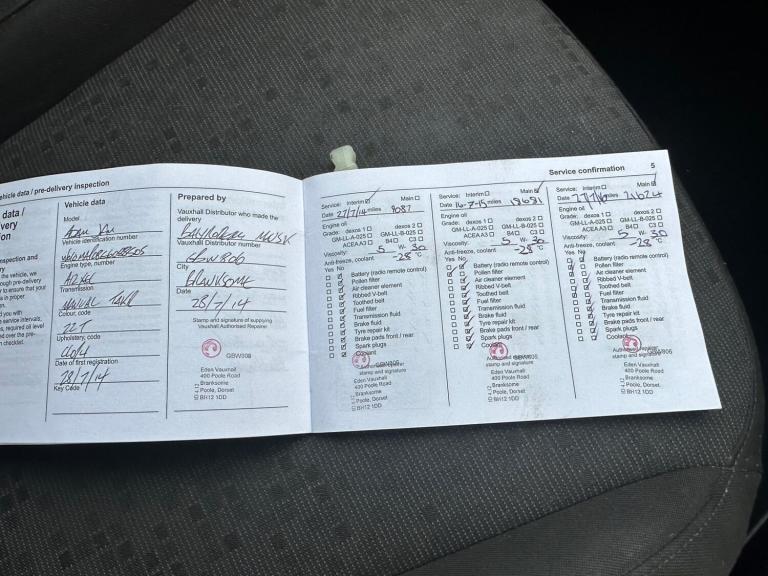 ehicle data / pre-delivery inspection
data /
very
on
spection and
ry
the vehicle, we
rough pre-delivery
to ensure that your
is in proper
n.
d you with
service intervals,
s, required oil level
d over the pre-
n checklist.
Vehicle data
Model
Adam
Vehicle identification number
Engine type, number
Transmission
Manual
Colour, code
22T
Upholstery, code
Date of first registration
28/7/14
Key Code
Prepared by
Vauxhall Distributor who made the
delivery
Vauxhall Distributor number
GBW806
City
Branksome
Date
28/7/14
Stamp and signature of supplying
Vauxhall Authorised Repairer
GBW806
Eden Vauxhall
400 Poole Road
Branksome
Poole, Dorset
BH12 1DD
Service confirmation 5
Service: Interim Main
Date 27/7/14 miles 8087
Engine oil
Grade: dexos 1 dexos 2
GM-LL-A-025 GM-LL-B-025
ACEA A3 B4 C3
Viscosity: 5 W- 30
Anti-freeze, coolant -28 °C
Yes No
Battery (radio remote control)
Pollen filter
Air cleaner element
Ribbed V-belt
Toothed belt
Fuel filter
Transmission fluid
Brake fluid
Tyre repair kit
Brake pads front / rear
Spark plugs
Coolant
Authorised repairer
stamp and signature
GBW806
Eden Vauxhall
400 Poole Road
Branksome
Poole, Dorset
BH12 1DD
Service: Interim Main
Date 16-7-15 miles 18681
Engine oil
Grade: dexos 1 dexos 2
GM-LL-A-025 GM-LL-B-025
ACEA A3 B4 C3
Viscosity: 5 W- 30
Anti-freeze, coolant -28 °C
Yes No
Battery (radio remote control)
Pollen filter
Air cleaner element
Ribbed V-belt
Toothed belt
Fuel filter
Transmission fluid
Brake fluid
Tyre repair kit
Brake pads front / rear
Spark plugs
Coolant
Authorised repairer
stamp and signature
Eden Vauxhall
400 Poole Road
Branksome
Poole, Dorset
BH12 1DD
Service: Interim Main
Date 27/7/16 miles 21624
Engine oil
Grade: dexos 1 dexos 2
GM-LL-A-025 GM-LL-B-025
ACEA A3 B4 C3
Viscosity: 5 W- 30
Anti-freeze, coolant -28 °C
Yes No
Battery (radio remote control)
Pollen filter
Air cleaner element
Ribbed V-belt
Toothed belt
Fuel filter
Transmission fluid
Brake fluid
Tyre repair kit
Brake pads front / rear
Spark plugs
Coolant
Authorised repairer
stamp and signature
Eden Vauxhall
400 Poole Road
Branksome
Poole, Dorset
BH12 1DD